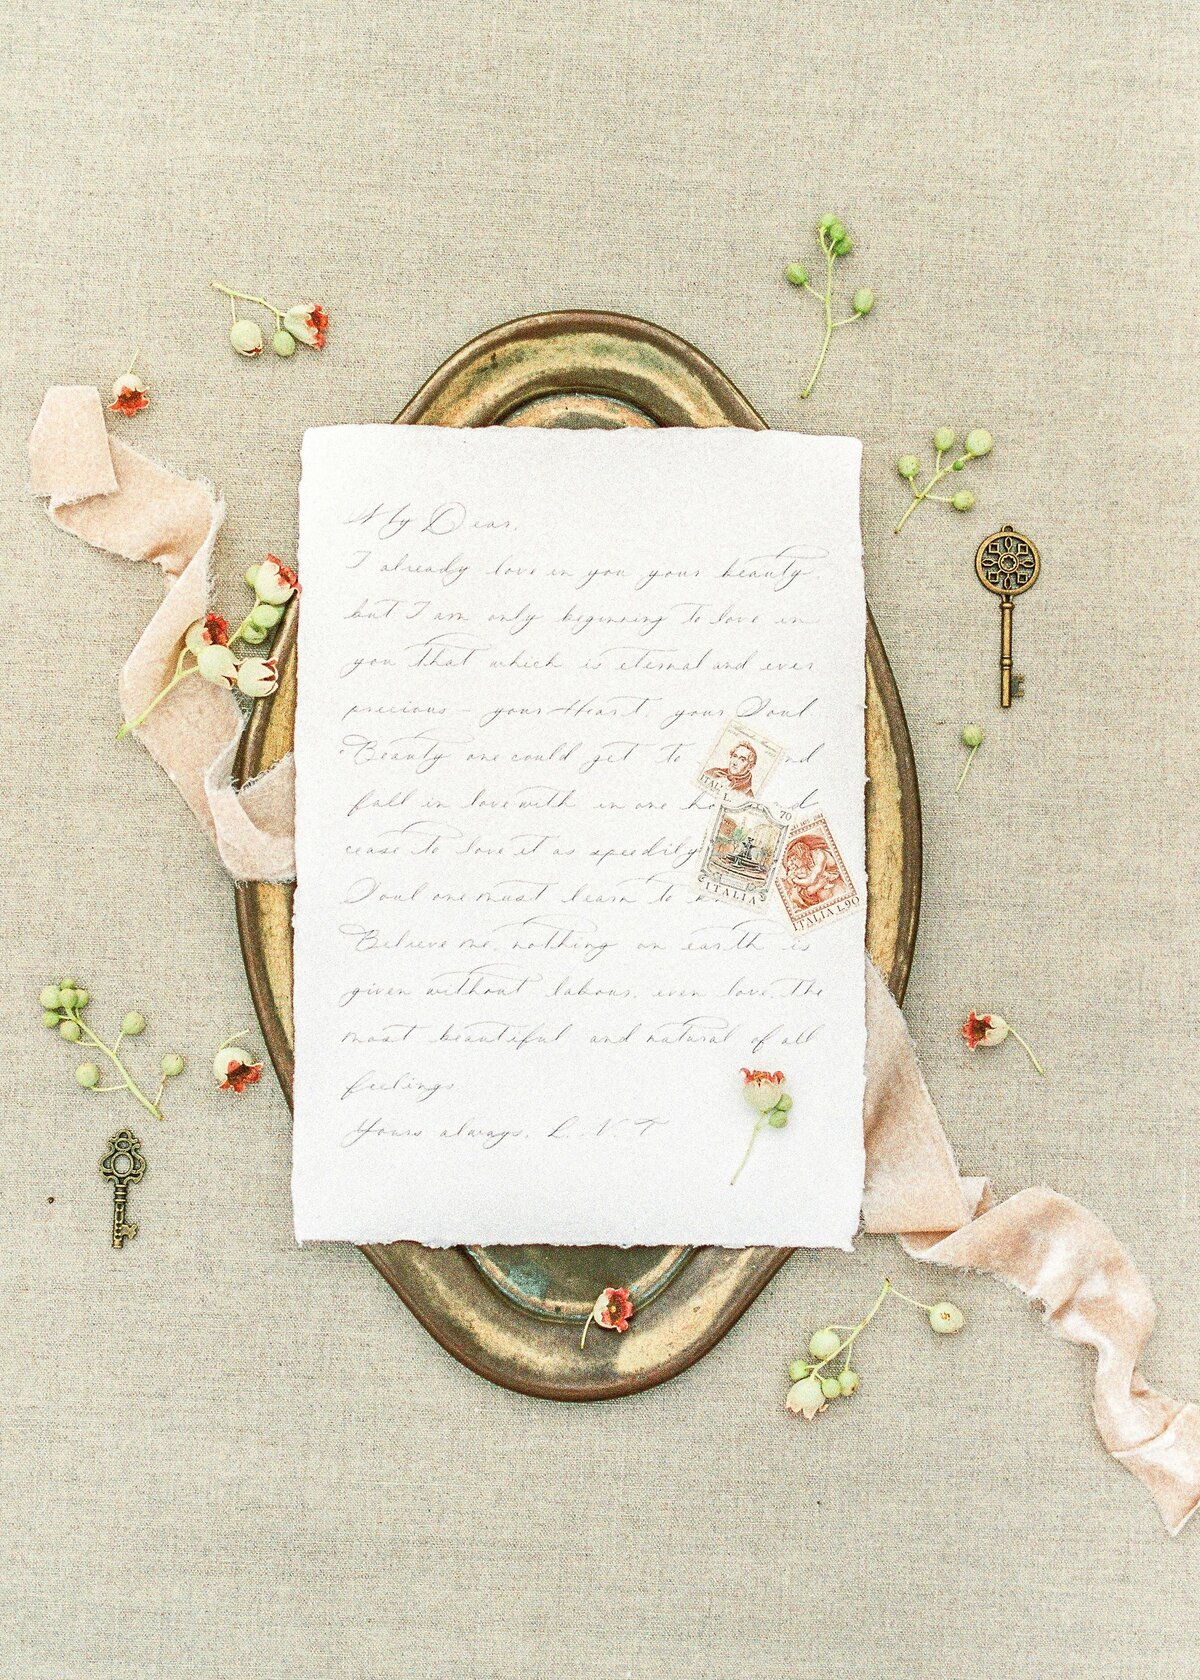 My Dear,
I already love in you your beauty,
but I am only beginning to love in
you that which is eternal and ever
precious – your Heart, your Soul
Beauty one could get to nd
fall in love with in one ho d
cease to love it as speedily
Soul one must learn to k
Believe me, nothing on earth is
given without labour, even love, the
most beautiful and natural of all
feelings
Yours always, L. N. T
ITAL L.
70
ITALIA
ITALIA L.90